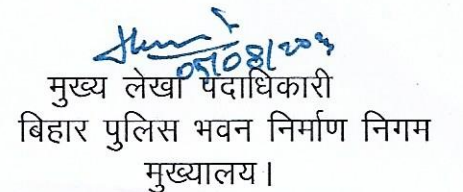 05/08/20
मुख्य लेखा पदाधिकारी
बिहार पुलिस भवन निर्माण निगम
मुख्यालय।